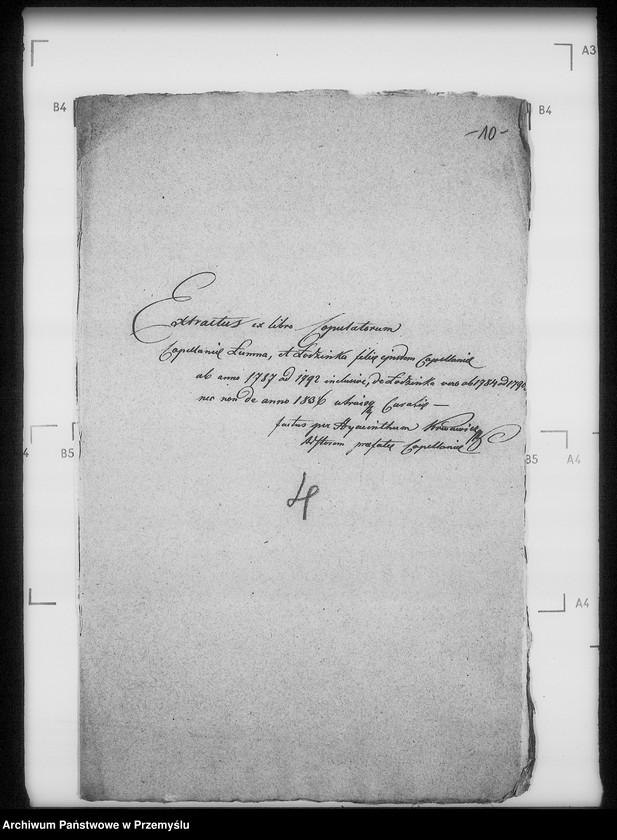 -10-
Extractus ex libro Copulatorum
Capellaniæ Łumna, et Łodzinka filiæ ejusdem Capellaniæ
ab anno 1787 ad 1792 inclusive, de Łodzinka vero ab 1784 ad 1790
nec non de anno 1836 utriusq Curatiæ —
factus per Hyacinthum
præfatæ Capellaniæ
4
A3
B4
B4
4
B5
B5
A4
A4
Archiwum Państwowe w Przemyślu